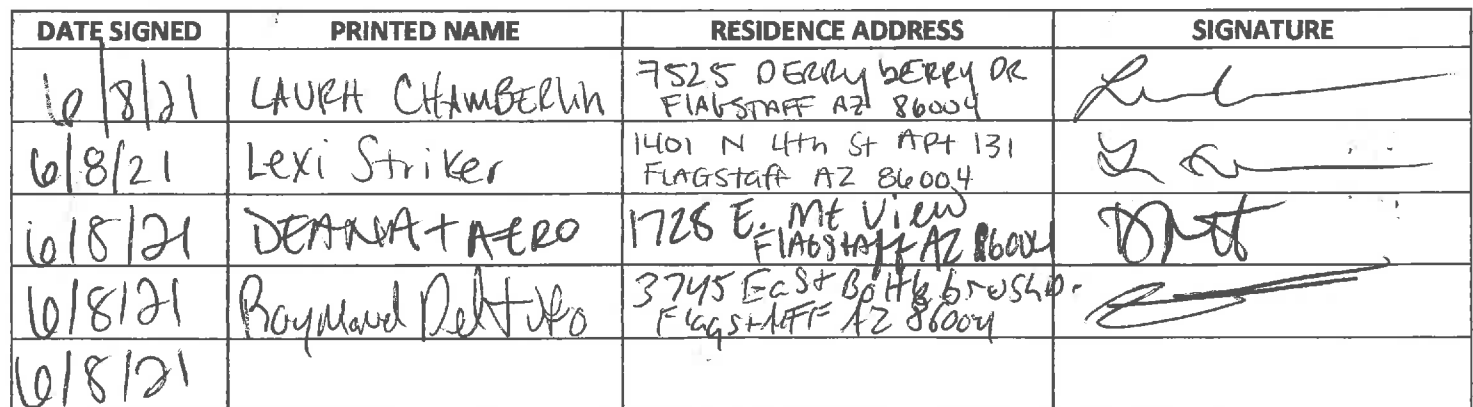 DATE SIGNED PRINTED NAME RESIDENCE ADDRESS SIGNATURE
6/8/21 LAURA CHAMBERLIN 7525 DERRYBERRY DR
FLAGSTAFF AZ 86004
6/8/21 Lexi Striker 1401 N 4th St APt 131
FLAGStaff AZ 86004
6/8/21 1728 E. Mt View
FLAGSTAFF AZ 86004
6/8/21 Raymond 3745 East Bottlebrush
FlagstAFF AZ 86004
6/8/21